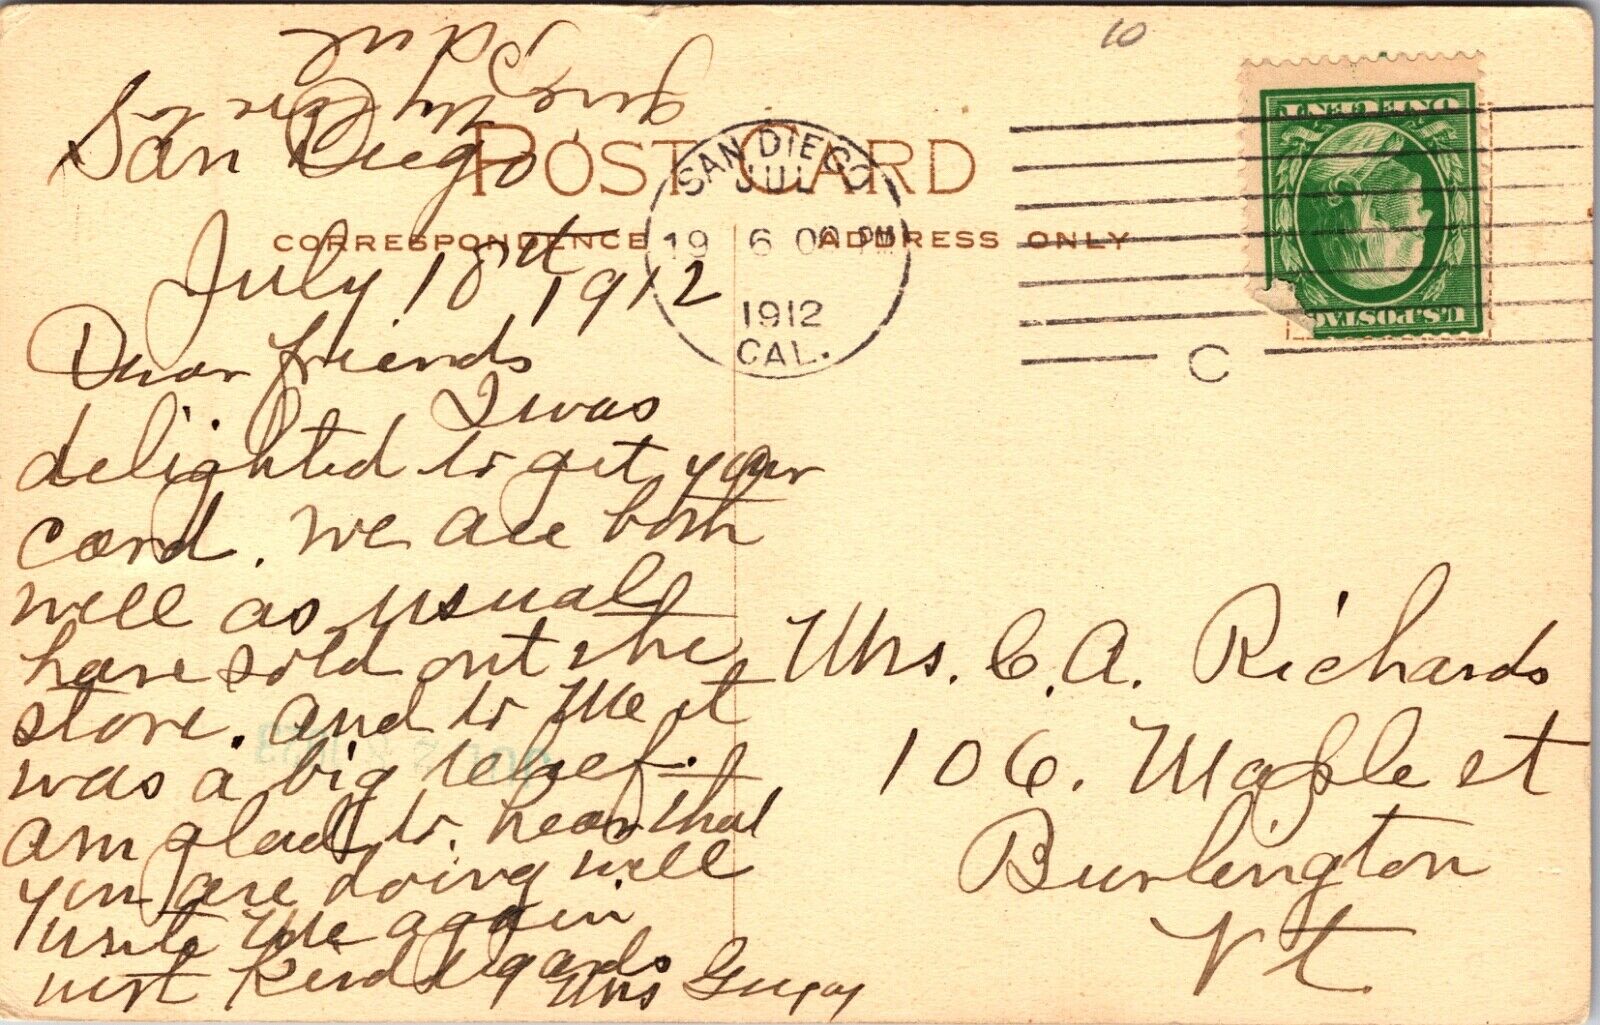 10
give my love to
San Diego
POST CARD
CORRESPONDENCE
ADDRESS ONLY
SAN DIEGO
JUL
19 6 00 PM
1912
CAL.
C
ONE CENT
U.S.POSTAG
July 18th 1912
Dear friends
I was
delighted to get your
card. we are both
well as usual
have sold out the
store. and to me it
was a big relief.
am glad to hear that
you are doing well
write me again
with Kind regards
Mrs
Mrs. C. A. Richards
106. Maple st
Burlington
Vt